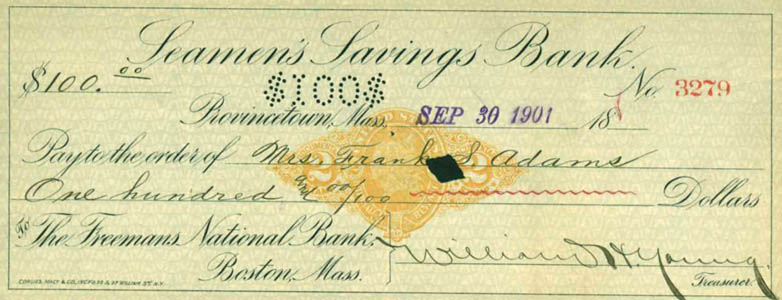 Seamen's Savings Bank.
$100.00
$100$
No. 3279
Provincetown, Mass, SEP 30 1901 18
Pay to the order of Mrs. Frank S. Adams
One hundred and 00/100 Dollars
To The Freemans National Bank,
Boston, Mass.
William H. Young
Treasurer.